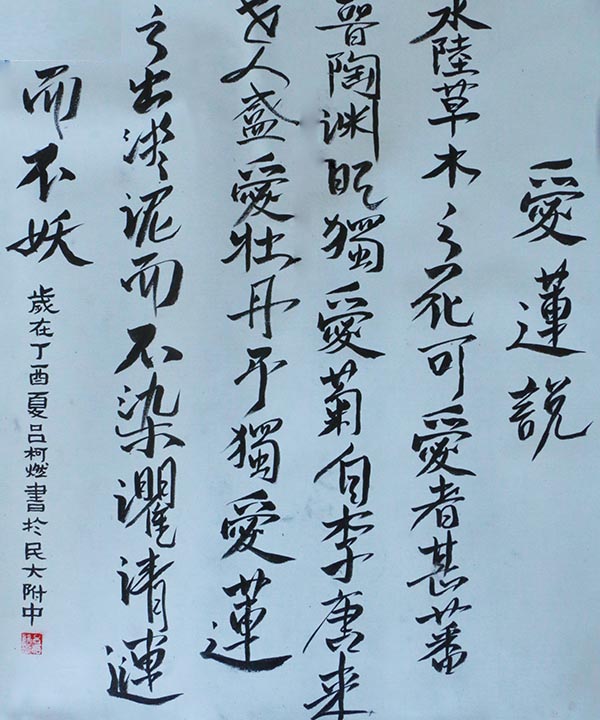 愛蓮説
水陸草木之花可愛者甚蕃
晉陶渊明獨愛菊自李唐来
世人盛愛牡丹予獨愛蓮
之出淤泥而不染濯清漣
而不妖
歲在丁酉夏吕柯燃書於民大附中